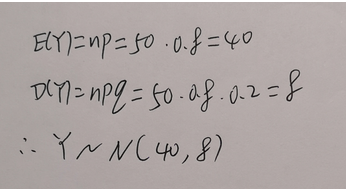 E(Y)=np=50·0.8=40
D(Y)=npq=50·0.8·0.2=8
∴ Y~N(40,8)